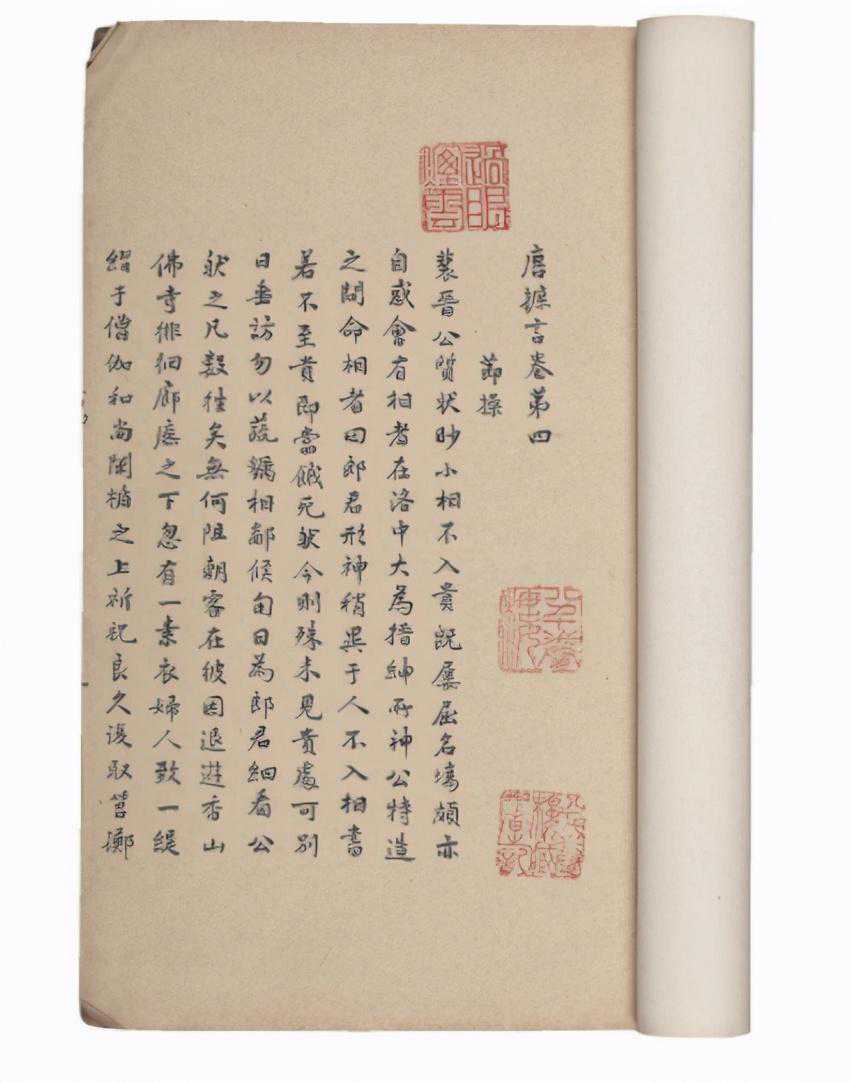 唐摭言卷第四
節操
裴晉公質狀眇小相不入貴既屢屈名場頗亦
自惑會有相者在洛中大為搢紳所神公特造
之問命相者曰郎君形神稍異于人不入相書
若不至貴即當餓死然今則殊未見貴處可別
日垂訪勿以蔬糲相鄙候旬日為郎君細看公
然之凡數往矣無何阻朝客在彼因退遊香山
佛寺徘徊廊廡之下忽有一素衣婦人致一緹
縎于僧伽和尚闌楯之上祈祝良久復取筶擲
過眼
雲煙